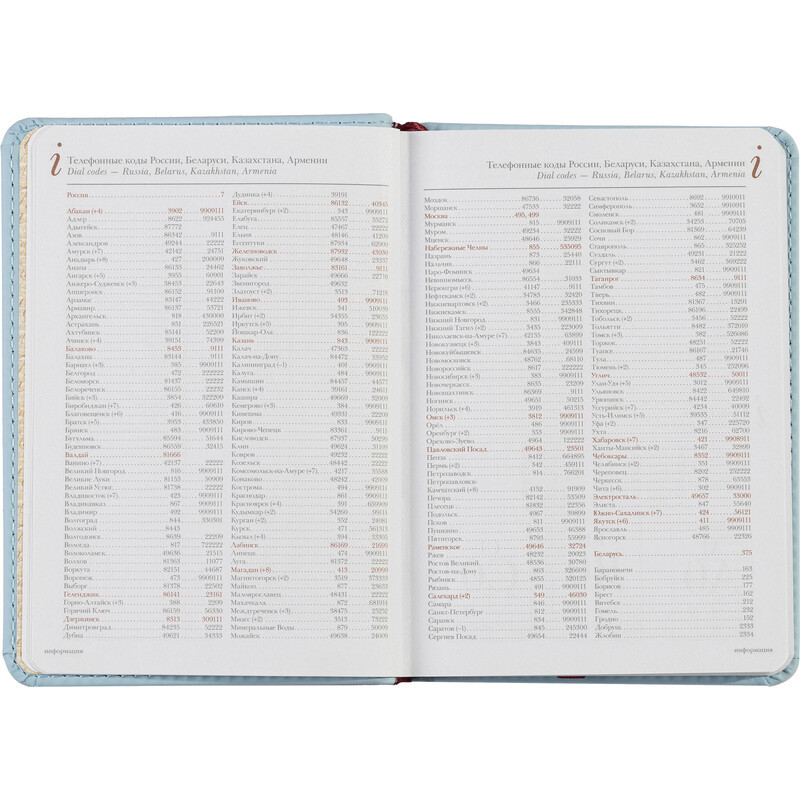 i
Телефонные коды России, Беларуси, Казахстана, Армении
Dial codes — Russia, Belarus, Kazakhstan, Armenia
Россия 7
Абакан (+4) 3902 9909111
Адлер 8622 924455
Адыгейск 87772
Азов 86342 9111
Александров 49244 22222
Амурск (+7) 42142 24751
Анадырь (+8) 427 200000
Анапа 86133 24462
Ангарск (+5) 3955 60901
Анжеро-Судженск (+3) 38453 22643
Апшеронск 86152 91100
Арзамас 83147 44222
Армавир 86137 53721
Архангельск 818 430000
Астрахань 851 226521
Ахтубинск 85141 52200
Ачинск (+4) 39151 74399
Балаково 8453 9111
Балахна 83144 9111
Барнаул (+3) 385 9909111
Белгород 472 222222
Беломорск 81437 22222
Белореченск 86155 22232
Бийск (+3) 3854 322209
Биробиджан (+7) 426 60610
Благовещенск (+6) 416 9909111
Братск (+5) 3953 433850
Брянск 483 9909111
Бугульма 85594 51644
Буденновск 86559 32415
Валдай 81666
Ванино (+7) 42137 22222
Великий Новгород 816 9909111
Великие Луки 81153 30909
Великий Устюг 81738 22222
Владивосток (+7) 423 9909111
Владикавказ 867 9909111
Владимир 492 9909111
Волгоград 844 330301
Волжский 8443
Волгодонск 8639 22209
Вологда 817 722222
Волоколамск 49636 21515
Волхов 81363 11077
Воркута 82151 44687
Воронеж 473 9909111
Выборг 81378 22502
Геленджик 86141 23161
Горно-Алтайск (+3) 388 2209
Горячий Ключ 86159 36330
Дзержинск 8313 300111
Димитровград 84235 52222
Дубна 49621 54333
Дудинка (+4) 39191
Ейск 86132 40345
Екатеринбург (+2) 343 9909111
Елабуга 85557 55272
Елец 47467 22222
Ельня 48146 41206
Ессентуки 87934 62900
Железноводск 87932 43030
Жуковский 49648 22337
Заволжье 83161 9111
Зарайск 49666 22770
Звенигород 49632
Златоуст (+2) 3513 71219
Иваново 493 9909111
Ижевск 341 510039
Ирбит (+2) 34355 23635
Иркутск (+5) 395 9909111
Йошкар-Ола 836 122222
Казань 843 9909111
Калач 47363 22222
Калач-на-Дону 84472 33952
Калининград (−1) 401 9909111
Калуга 484 9909111
Камышин 84457 44577
Канск (+4) 39161 2461
Кашира 49669 32900
Кемерово (+3) 384 9909111
Кинешма 49331 22209
Киров 833 9909111
Кирово-Чепецк 83361 9111
Кисловодск 87937 50295
Клин 49624 31109
Ковров 49232 22222
Козельск 48442 22222
Комсомольск-на-Амуре (+7) 4217 35588
Конаково 48242 42009
Кострома 494 9909111
Краснодар 861 9909111
Красноярск (+4) 391 659909
Кудымкар (+2) 34260 9911
Курган (+2) 352 24981
Курск 471 561313
Кызыл (+4) 394 33305
Лабинск 86169 21699
Липецк 474 9909111
Луга 81372 22222
Магадан (+8) 413 20990
Магнитогорск (+2) 3519 373333
Майкоп 877 23633
Малоярославец 48431 22222
Махачкала 872 681914
Междуреченск (+3) 38475 23252
Миасс (+2) 3513 73222
Минеральные Воды 879 50909
Можайск 49638 24009
информация
i
Телефонные коды России, Беларуси, Казахстана, Армении
Dial codes — Russia, Belarus, Kazakhstan, Armenia
Моздок 86736 32058
Моршанск 47533 32222
Москва 495, 499
Мурманск 815 9909111
Муром 49234 32222
Мценск 48646 25023
Набережные Челны 855 535095
Назрань 873 25440
Нальчик 866 22111
Наро-Фоминск 49634
Невинномысск 86554 31033
Нерюнгри (+6) 41147 9111
Нефтекамск (+2) 34783 32420
Нижневартовск (+2) 3466 235333
Нижнекамск 8555 342848
Нижний Новгород 831 9909111
Нижний Тагил (+2) 3435 223009
Николаевск-на-Амуре (+7) 42135 63899
Новокузнецк (+3) 3843 809111
Новокуйбышевск 84635 24599
Новомосковск 48762 68110
Новороссийск 8617 222222
Новосибирск (+3) 383 9909111
Новочеркасск 8635 23209
Новошахтинск 86369 9111
Ногинск 49651 50215
Норильск (+4) 3919 461313
Омск (+3) 3812 9909111
Орёл 486 9909111
Оренбург (+2) 353 9909111
Орехово-Зуево 4964 122222
Павловский Посад 49643 23501
Пенза 8412 664895
Пермь (+2) 342 459111
Петрозаводск 814 766201
Петропавловск-
Камчатский (+8) 4152 91909
Печора 82142 53509
Плесецк 81832 22356
Подольск 4967 39899
Псков 811 9909111
Пушкино 49653 46388
Пятигорск 8793 55999
Раменское 49646 32724
Ржев 48232 20023
Ростов Великий 48536 30780
Ростов-на-Дону 863 326609
Рыбинск 4855 520125
Рязань 491 9909111
Салехард (+2) 349 46030
Самара 846 9909111
Санкт-Петербург 812 9909111
Саранск 834 9909111
Саратов (−1) 845 245300
Сергиев Посад 49654 22444
Севастополь 8692 9910911
Симферополь 3652 9910911
Смоленск 481 9909111
Соликамск (+2) 34253 70705
Сосновый Бор 81369 64239
Сочи 862 9909111
Ставрополь 865 325252
Суздаль 49231 21222
Сургут (+2) 3462 509222
Сыктывкар 821 9909111
Таганрог 8634 9111
Тамбов 475 9909111
Тверь 482 9909111
Тихвин 81367 13291
Тихорецк 86196 22499
Тобольск (+2) 3456 52222
Тольятти 8482 372010
Томск (+3) 382 526086
Торжок 48251 52222
Туапсе 86167 21746
Тула 487 9909111
Тюмень (+2) 345 252096
Углич 48532 50011
Улан-Удэ (+5) 3012 9909111
Ульяновск 8422 649801
Урюпинск 84442 22492
Уссурийск (+7) 4234 40009
Усть-Илимск (+5) 39535 51112
Уфа (+2) 347 225720
Ухта 8216 62700
Хабаровск (+7) 421 9908911
Ханты-Мансийск (+2) 3467 32899
Чебоксары 8352 9909111
Челябинск (+2) 351 9909111
Череповец 8202 252222
Черкесск 878 63553
Чита (+6) 302 9909111
Электросталь 49657 33000
Элиста 847 55640
Южно-Сахалинск (+7) 424 56121
Якутск (+6) 411 9909111
Ярославль 485 9909111
Ясногорск 48766 22326
Беларусь 375
Барановичи 163
Бобруйск 225
Борисов 177
Брест 162
Витебск 212
Гомель 232
Гродно 152
Добруш 2333
Жлобин 2334
информация